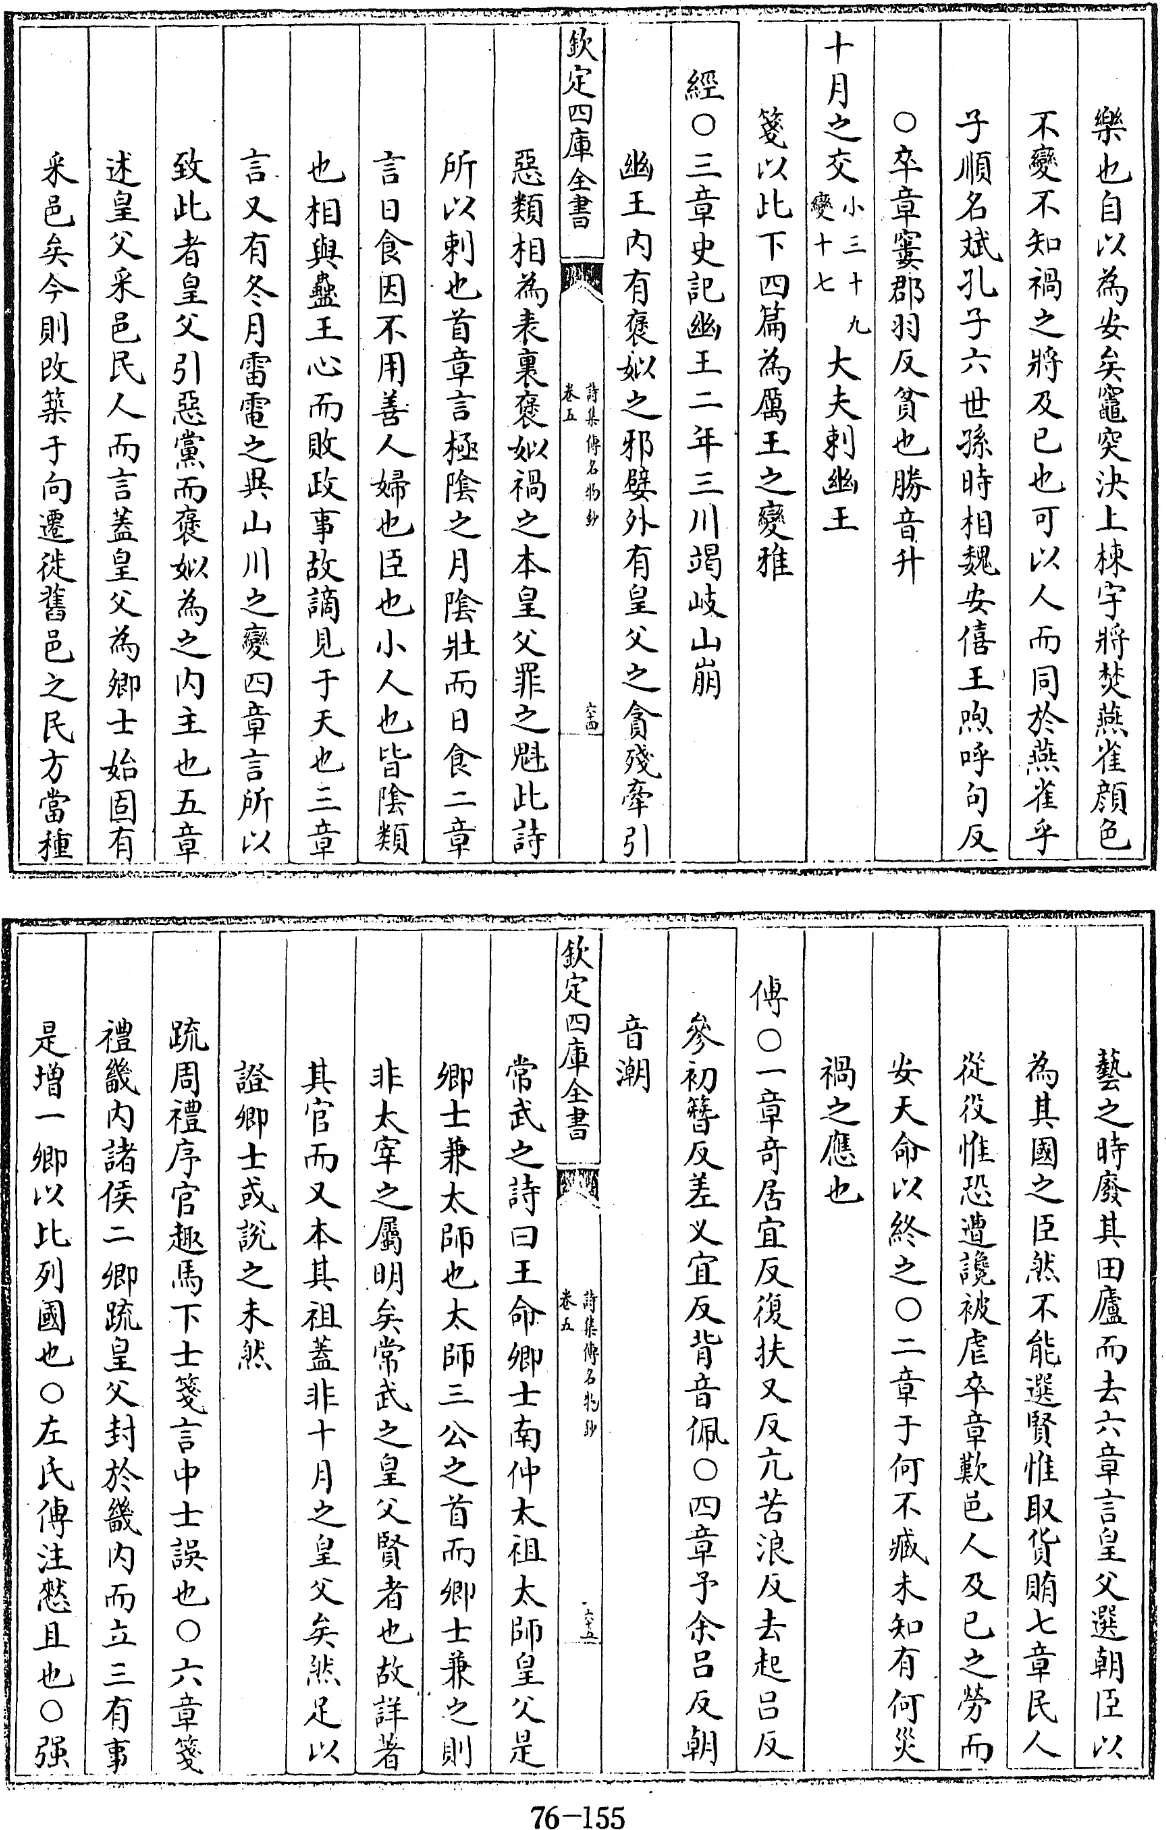 樂也自以為安矣竈突決上棟宇將焚燕雀顔色
不變不知禍之將及已也可以人而同於燕雀乎
子順名斌孔子六世孫時相魏安僖王喣呼句反
○卒章窶郡羽反貧也勝音升
十月之交小三十九變十七大夫刺幽王
箋以此下四篇為厲王之變雅
經○三章史記幽王二年三川竭岐山崩
幽王内有褒姒之邪嬖外有皇父之貪殘牽引
欽定四庫全書
詩集傳名物鈔
卷五
六四
惡類相為表裏褒姒禍之本皇父罪之魁此詩
所以刺也首章言極陰之月陰壯而日食二章
言日食因不用善人婦也臣也小人也皆陰類
也相與蠱王心而敗政事故謫見于天也三章
言又有冬月雷電之異山川之變四章言所以
致此者皇父引惡黨而褒姒為之内主也五章
述皇父采邑民人而言蓋皇父為卿士始固有
采邑矣今則改築于向遷徙舊邑之民方當種
藝之時廢其田廬而去六章言皇父選朝臣以
為其國之臣然不能選賢惟取貨賄七章民人
從役惟恐遭讒被虐卒章歎邑人及已之勞而
安天命以終之○二章于何不臧未知有何災
禍之應也
傳○一章奇居宜反復扶又反亢苦浪反去起呂反
參初簪反差乂宜反背音佩○四章予余呂反朝
音潮
欽定四庫全書
詩集傳名物鈔
卷五
六五
常武之詩曰王命卿士南仲太祖太師皇父是
卿士兼太師也太師三公之首而卿士兼之則
非太宰之屬明矣常武之皇父賢者也故詳著
其官而又本其祖蓋非十月之皇父矣然足以
證卿士或說之未然
疏周禮序官趣馬下士箋言中士誤也○六章箋
禮畿内諸侯二卿疏皇父封於畿内而立三有事
是增一卿以比列國也○左氏傳注憖且也○强
76-155